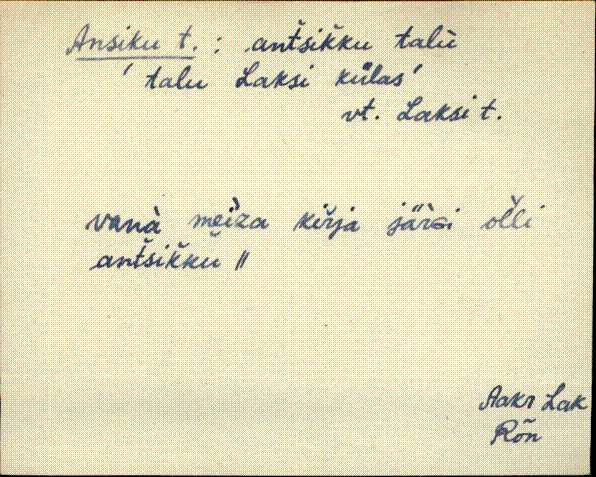 Ansiku t. : antšikku talù
'talu Laksi külas'
vt. Laksi t.
vanà meìza kiŕja järsi olli
antšikku //
Aakr Lak
Rõn